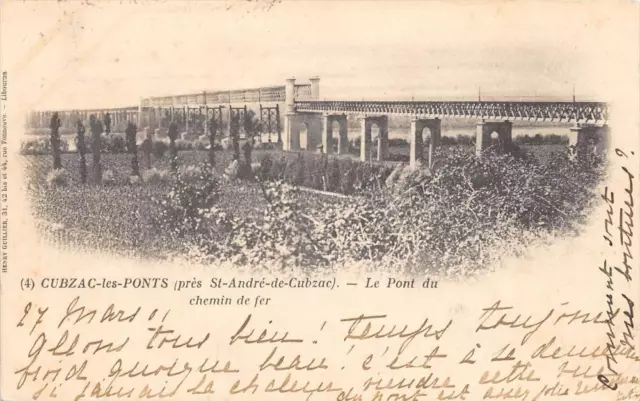 HENRY GUILLIER, 31, 42 bis et 44, rue Fonneuve. - Libourne
(4) CUBZAC-les-PONTS (près St-André-de-Cubzac). — Le Pont du
chemin de fer
27 Mars 01
allons tous bien! temps toujours
froid quoique beau! c'est à se demander
si jamais la chaleur viendra cette
du pont est assez jolie
Comment sont
mes boutures?